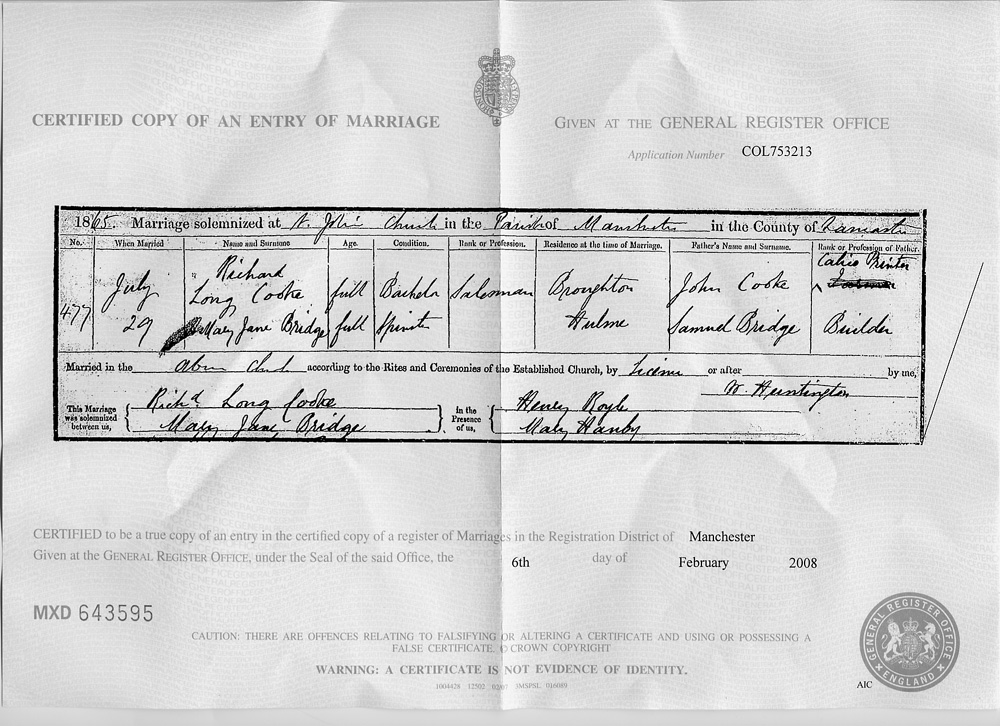 CERTIFIED COPY OF AN ENTRY OF MARRIAGE
GIVEN AT THE GENERAL REGISTER OFFICE
Application Number COL753213
1865. Marriage solemnized at St. John's Church in the Parish of Manchester in the County of Lancaster
No. When Married Name and Surname Age. Condition. Rank or Profession. Residence at the time of Marriage. Father's Name and Surname. Rank or Profession of Father.
477
July 29
Richard Long Cooke full Bachelor Salesman Broughton John Cooke Calico Printer
Mary Jane Bridge full Spinster Hulme Samuel Bridge Builder
Married in the above Church according to the Rites and Ceremonies of the Established Church, by License or after by me,
W. Huntington
This Marriage was solemnized between us,
Richd Long Cooke
Mary Jane Bridge
in the Presence of us,
Henry Royle
Mary Hanby
CERTIFIED to be a true copy of an entry in the certified copy of a register of Marriages in the Registration District of Manchester
Given at the GENERAL REGISTER OFFICE, under the Seal of the said Office, the 6th day of February 2008
MXD 643595
CAUTION: THERE ARE OFFENCES RELATING TO FALSIFYING OR ALTERING A CERTIFICATE AND USING OR POSSESSING A
FALSE CERTIFICATE. © CROWN COPYRIGHT
WARNING: A CERTIFICATE IS NOT EVIDENCE OF IDENTITY.
1004428 12502 02/07 3MSPSL 016089
GENERAL REGISTER OFFICE
ENGLAND
AIC